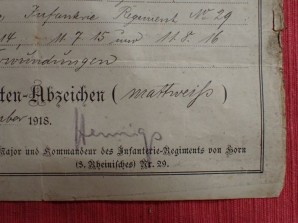 Infanterie Regiment No 29
14, 11.7.15 und 11.8.16
wundungen
ten-Abzeichen (mattweiß)
ber 1918.
Hennigs
Major und Kommandeur des Infanterie-Regiments von Horn
(3. Rheinisches) Nr. 29.